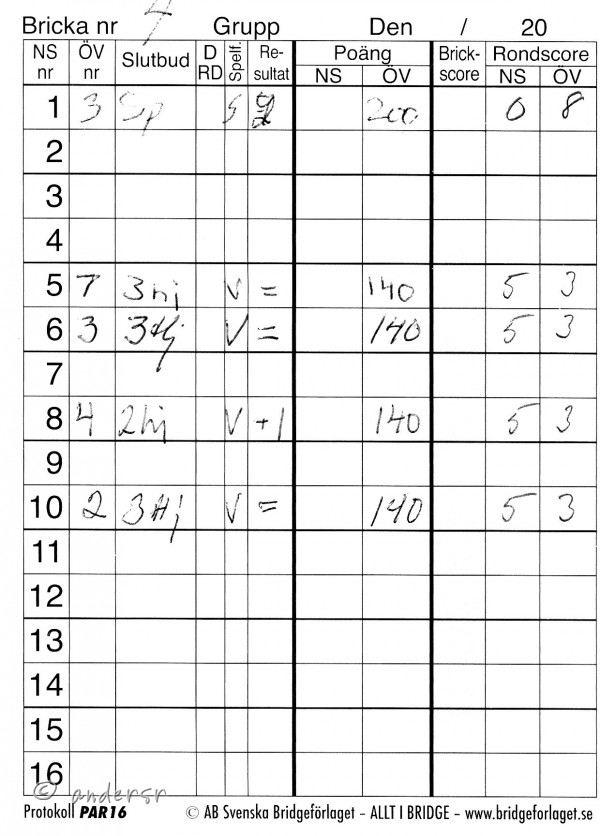 Bricka nr 4 Grupp Den / 20
NS nr ÖV nr Slutbud D RD Spelf. Resultat Poäng NS ÖV Brickscore Rondscore NS ÖV
1 3 Sp S 200 0 8
2
3
4
5 7 3hj V = 140 5 3
6 3 3Hj V = 140 5 3
7
8 4 2hj V +1 140 5 3
9
10 2 3Hj V = 140 5 3
11
12
13
14
15
16
© andersr
Protokoll PAR16 © AB Svenska Bridgeförlaget – ALLT I BRIDGE – www.bridgeforlaget.se